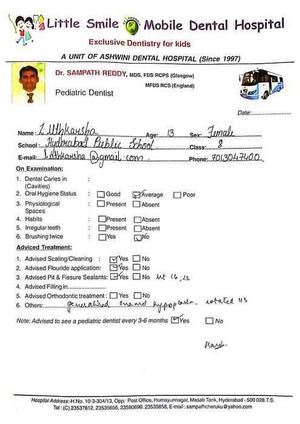 Little Smile Mobile Dental Hospital
Exclusive Dentistry for kids
A UNIT OF ASHWINI DENTAL HOSPITAL (Since 1997)
Dr. SAMPATH REDDY, MDS, FDS RCPS (Glasgow)
MFDS RCS (England)
Pediatric Dentist
Date:
Name: Age: 13 Sex: Female
School: Hyderabad Public School Class: 8
E-mail: @gmail.com Phone: 7013047400
On Examination:
1. Dental Caries in :
(Cavities)
2. Oral Hygiene Status : Good Average Poor
3. Physiological : Present Absent
Spaces
4. Habits : Present Absent
5. Irregular teeth : Present Absent
6. Brushing twice : Yes No
Adviced Treatment:
1. Advised Scaling/Cleaning : Yes No
2. Advised Flouride application: Yes No
3. Advised Pit & Fissure Sealants: Yes No
4. Advised Filling in
5. Advised Orthodontic treatment : Yes No
6. Others: generalised enamel hypoplasia. rotated
Note: Advised to see a pediatric dentist every 3-6 months Yes No
Hospital Address-H.No. 10-3-304/13, Opp: Post Office, Humayunnagar, Masab Tank, Hyderabad - 500 028 T.S.
Tel : (C) 23537612, 23535656, 23580690, 23535858, E-mail : sampathcheruku@yahoo.com